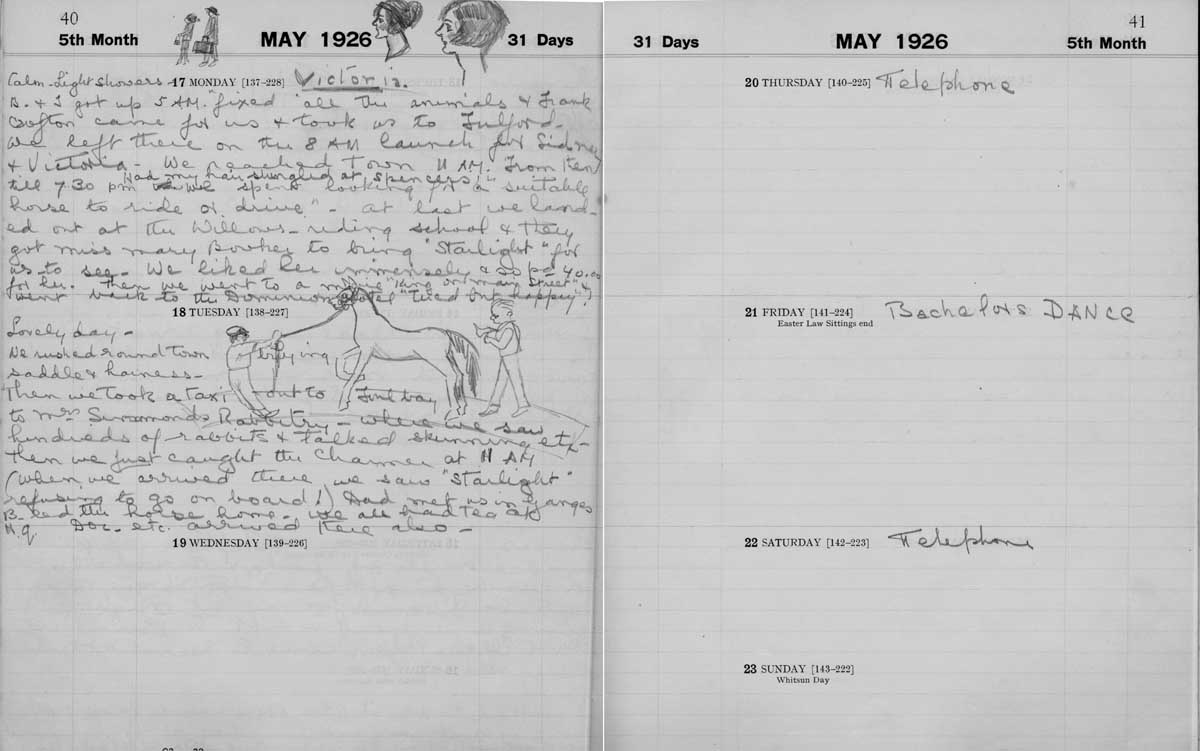 40
5th Month
MAY 1926
31 Days
Calm - Light showers - 17 MONDAY [137–228] Victoria.
B. & I got up 5 AM. "fixed" all the animals & Frank
Crofton came for us & took us to Fulford -
We left there on the 8 AM launch for Sidney
& Victoria - We reached Town 11 AM. From then
Had my hair shingled at "Spencers".
till 7.30 pm we spent looking for a suitable
horse to ride or drive" - at last we land-
ed out at the Willows - riding school & they
got Miss Mary Bowker to bring "Starlight" for
us to see - We liked her immensely & so pd 40.00
for her. Then we went to a movie "King on Main Street" &
went back to the Dominion Hotel "tired but happy"!
18 TUESDAY [138–227]
Lovely day -
We rushed round town buying
saddle & harness -
Then we took a taxi out to Foul bay
to Mrs Simmonds Rabbitry - where we saw
hundreds of rabbits & talked skinning etc -
Then we just caught the Charmer at 11 AM
(When we arrived there we saw "Starlight"
refusing to go on board!) Dad met us in Ganges
B. led the horse home - We all had tea at
H.q. Doc. etc. arrived there also -
19 WEDNESDAY [139–226]
41
31 Days
MAY 1926
5th Month
20 THURSDAY [140–225] Telephone
21 FRIDAY [141–224] Bachelors DANCE
Easter Law Sittings end
22 SATURDAY [142–223] Telephone
23 SUNDAY [143–222]
Whitsun Day